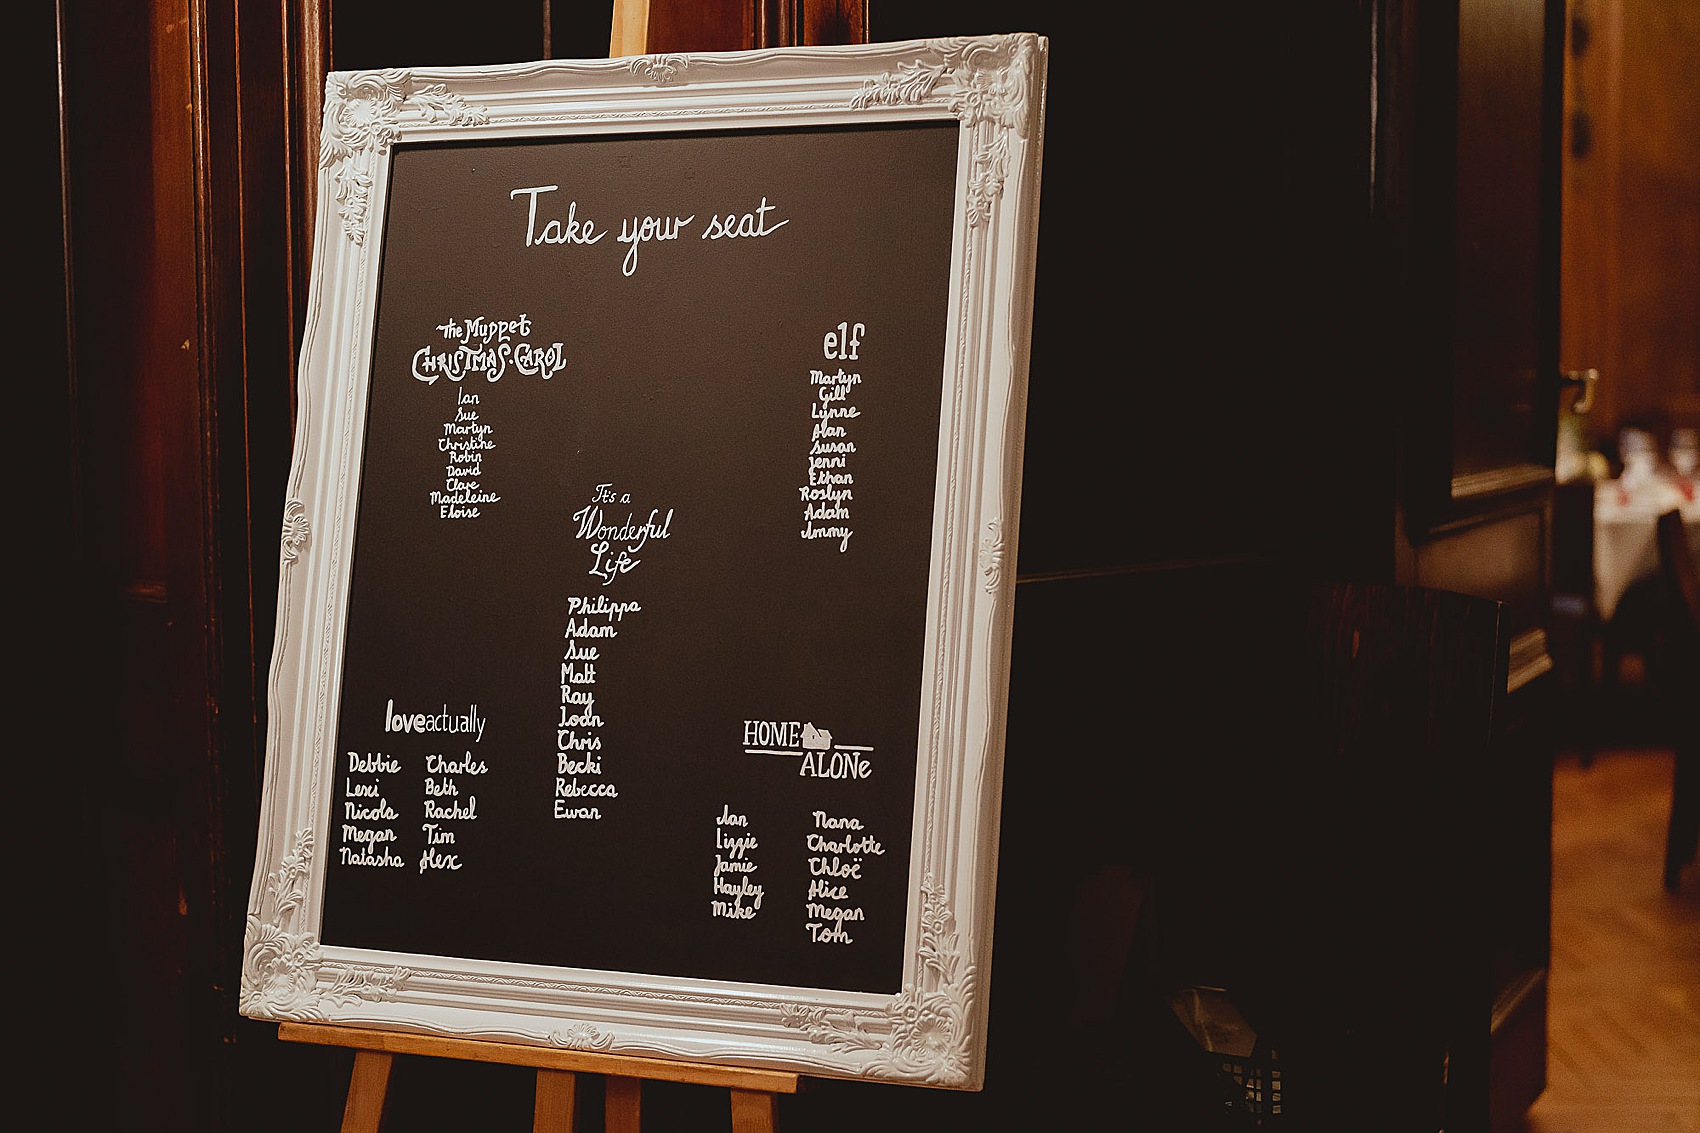 Take your seat
The Muppet
CHRISTMAS·CAROL
Ian
Sue
Martyn
Christine
Robin
David
Clare
Madeleine
Eloise
elf
Martyn
Gill
Lynne
Alan
Susan
Jenni
Ethan
Roslyn
Adam
Immy
It's a
Wonderful
Life
Philippa
Adam
Sue
Matt
Ray
Joan
Chris
Becki
Rebecca
Ewan
loveactually
Debbie
Lexi
Nicola
Megan
Natasha
Charles
Beth
Rachel
Tim
Alex
HOME
ALONe
Ian
Lizzie
Jamie
Hayley
Mike
Nana
Charlotte
Chloë
Alice
Megan
Tom